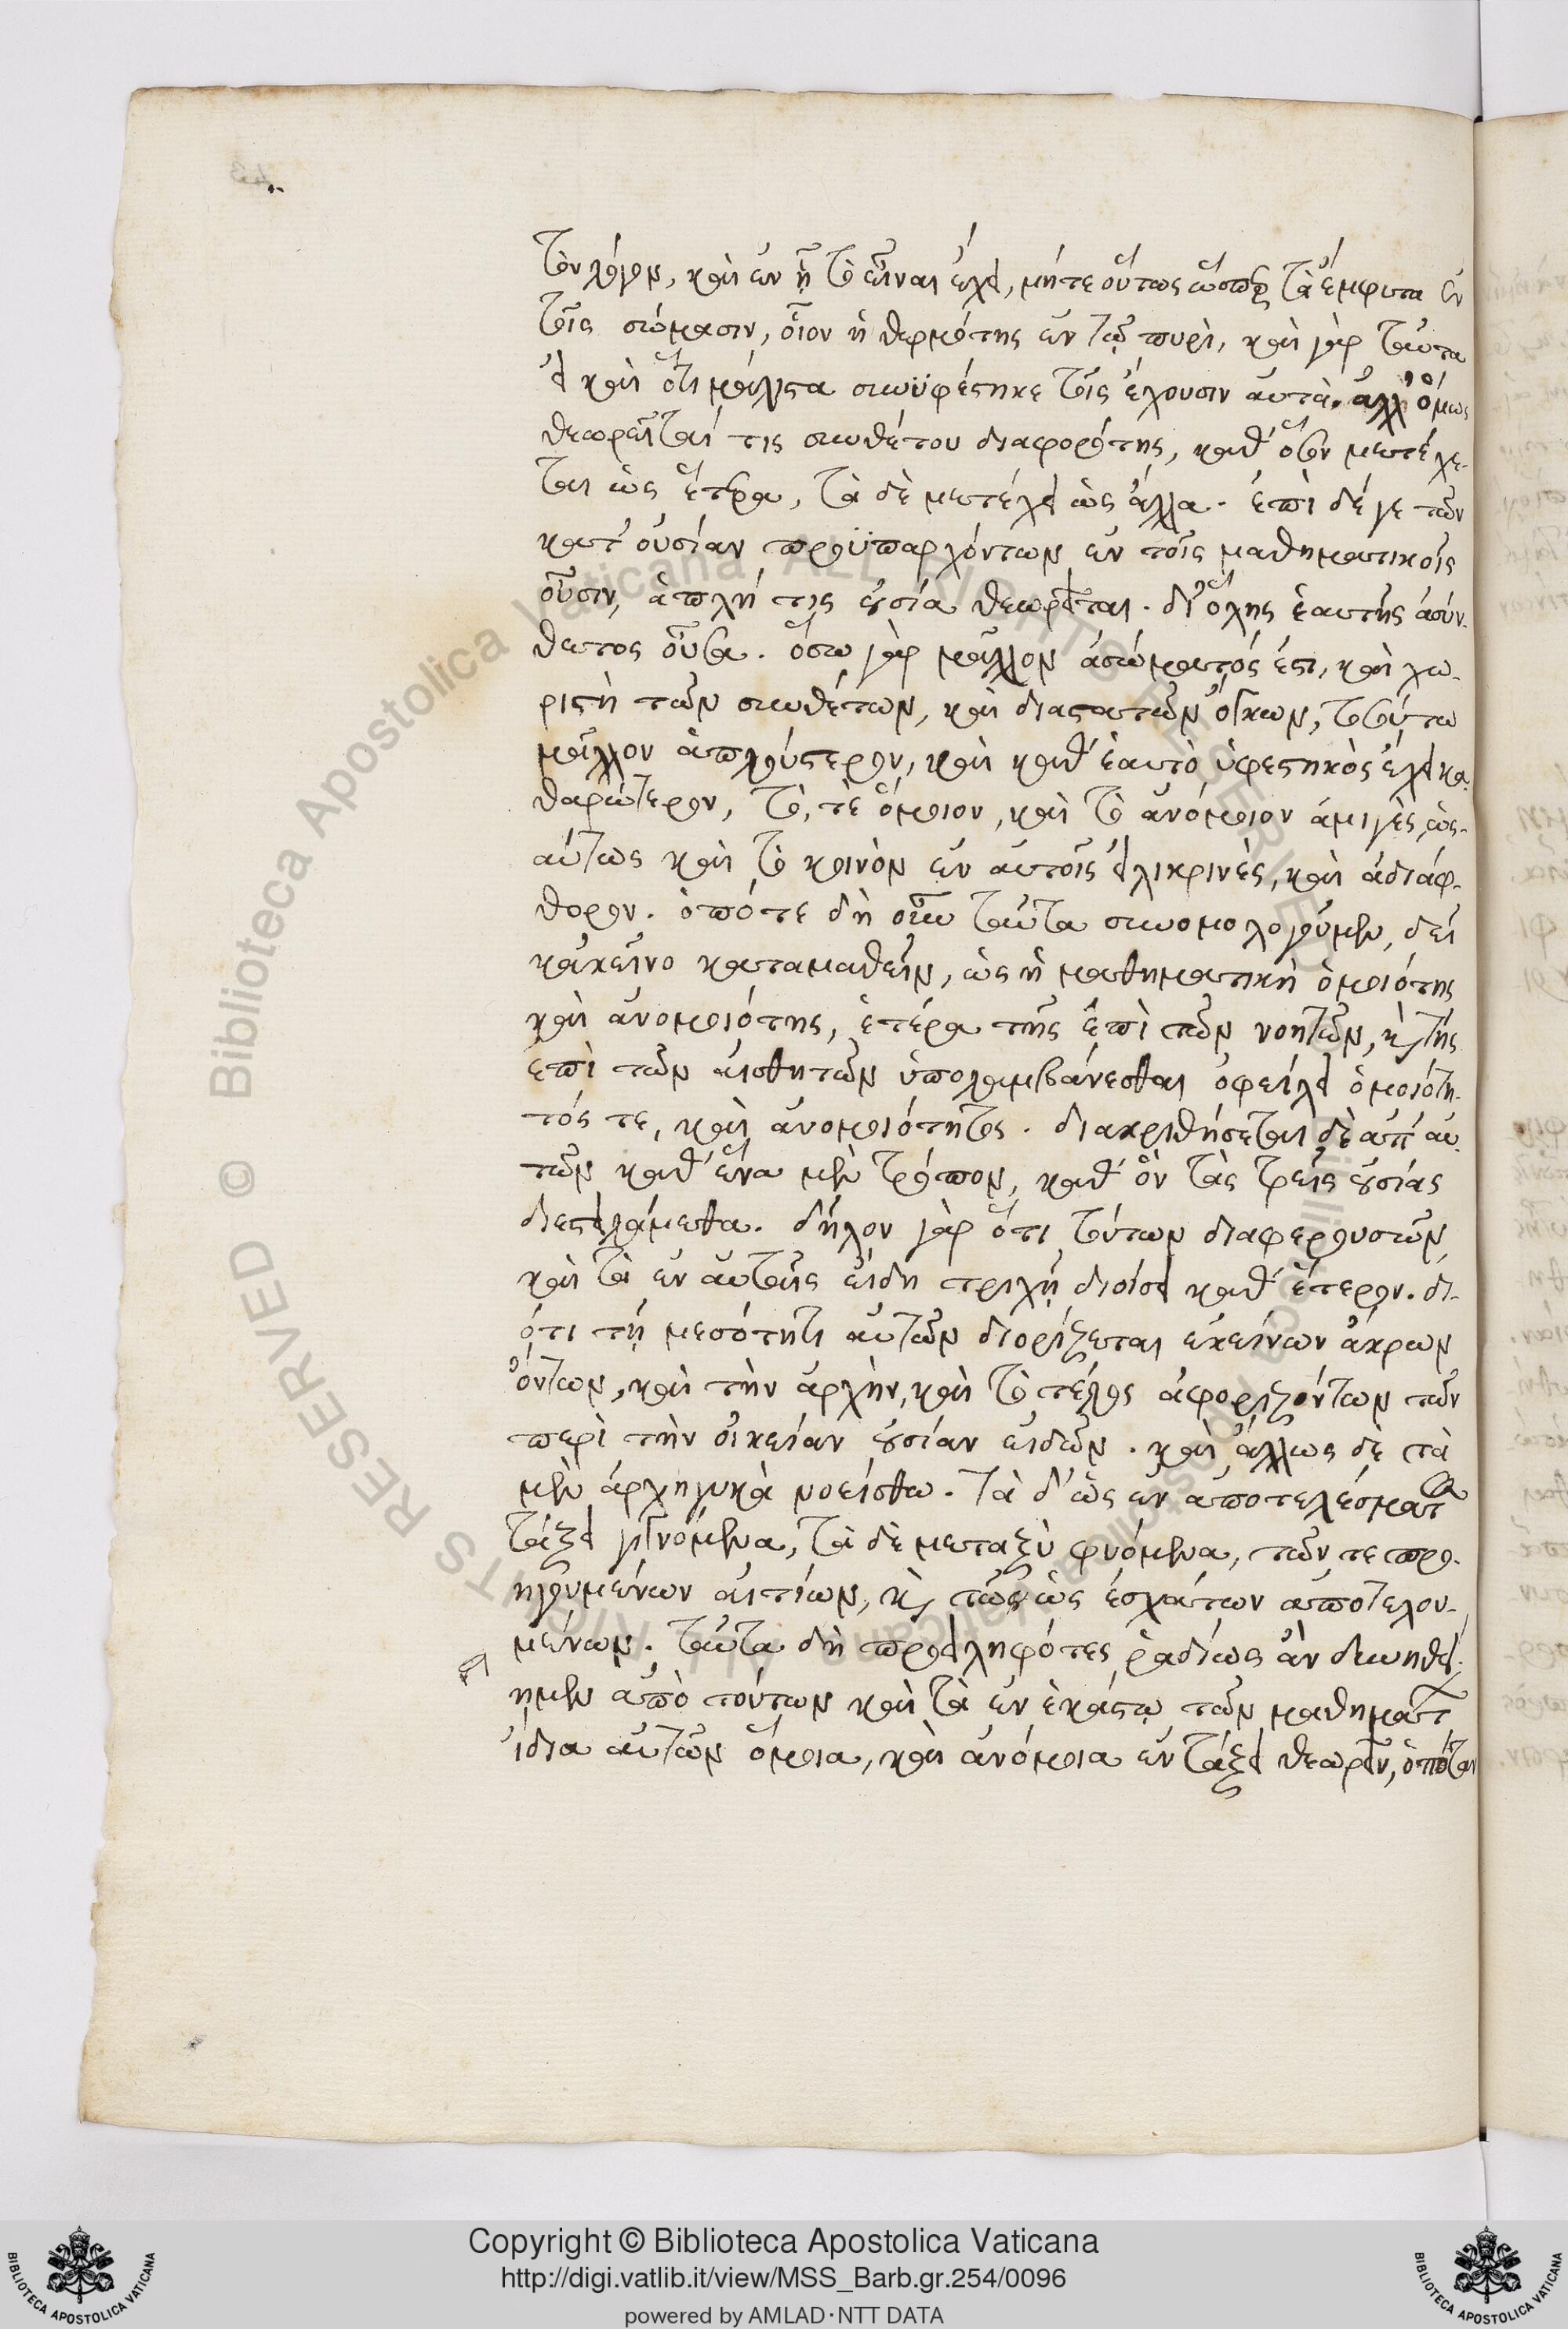 τὸν λόγον, καὶ ἐν ᾗ τὸ εἶναι ἔχει, μήτε οὕτως ὥσπερ τὰ ἔμφυτα ἐν
τοῖς σώμασιν, οἷον ἡ θερμότης ἐν τῷ πυρὶ, καὶ γὰρ ταῦτα
εἰ καὶ ὅτι μάλιστα συνυφέστηκε τοῖς ἔχουσιν αὐτὰ. ἀλλ' ὅμως
θεωρεῖταί τις συνθέτου διαφορότης, καθ' ὅσον μετέχε-
ται ὡς ἕτερα, τὰ δὲ μετέχει ὡς ἄλλα. ἐπὶ δέ γε τῶν
κατ' οὐσίαν προϋπαρχόντων ἐν τοῖς μαθηματικοῖς
οὖσιν, ἁπλῆ τις οὐσία θεωρεῖται. δι' ὅλης ἑαυτῆς ἀσύν-
θετος οὖσα. ὅσῳ γὰρ μᾶλλον ἀσώματός ἐστι, καὶ χω-
ριστὴ τῶν συνθέτων, καὶ διαστατῶν ὄγκων, τοσούτῳ
μᾶλλον ἁπλούστερον, καὶ καθ' ἑαυτὸ ὑφεστηκὸς ἔχει κα-
θαρώτερον, τό, τε ὅμοιον, καὶ τὸ ἀνόμοιον ἀμιγὲς, ὡς-
αύτως καὶ τὸ κοινὸν ἐν αὐτοῖς εἰλικρινὲς, καὶ ἀδιάφ-
θορον. ὁπότε δὴ οὖν ταῦτα συνομολογοῦμεν, δεῖ
κἀκεῖνο καταμαθεῖν, ὡς ἡ μαθηματικὴ ὁμοιότης
καὶ ἀνομοιότης, ἑτέρα τῆς ἐπὶ τῶν νοητῶν, κ̀ τῆς
ἐπὶ τῶν αἰσθητῶν ὑπολαμβάνεσθαι ὀφείλει ὁμοιότη-
τός τε, καὶ ἀνομοιότητος. διακριθήσεται δὲ ἀπ' αὐ-
τῶν καθ' ἕνα μὲν τρόπον, καθ' ὃν τὰς τρεῖς οὐσίας
διεστειλάμεθα. δῆλον γὰρ ὅτι τούτων διαφερουσῶν
καὶ τὰ ἐν αὐταῖς εἴδη τριχῇ διοίσει καθ' ἕτερον. δι-
ότι τῇ μεσότητι αὐτῶν διορίζεται ἐκείνων ἄκρων
ὄντων, καὶ τὴν ἀρχὴν, καὶ τὸ τέλος ἀφοριζόντων τῶν
περὶ τὴν οἰκείαν οὐσίαν εἰδῶν. καὶ ἄλλως δὲ τὰ
μὲν ἀρχηγικὰ νοείσθω. τὰ δ' ὡς ἐν ἀποτελέσματος
τάξει γιγνόμενα, τὰ δὲ μεταξὺ φυόμενα, τῶν τε προ-
ηγουμένων αἰτίων, κ̀ τῶν ὡς ἐσχάτων ἀποτελου-
μένων. ταῦτα δὴ προειληφότες ῥᾳδίως ἂν δυνηθεί-
ημεν ἀπὸ τούτων καὶ τὰ ἐν ἑκάστῳ τῶν μαθημάτ
ἴδια αὐτῶν ὅμοια, καὶ ἀνόμοια ἐν τάξει θεωρεῖν, ὁπόταν
Copyright © Biblioteca Apostolica Vaticana
http://digi.vatlib.it/view/MSS_Barb.gr.254/0096
powered by AMLAD·NTT DATA
BIBLIOTECA APOSTOLICA VATICANA
BIBLIOTECA APOSTOLICA VATICANA
© Biblioteca Apostolica Vaticana ALL RIGHTS RESERVED